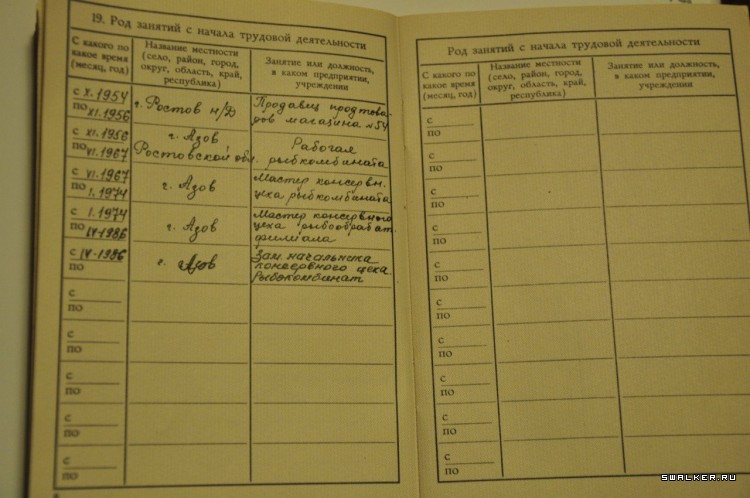 19. Род занятий с начала трудовой деятельности
С какого по
какое время
(месяц, год)
Название местности
(село, район, город,
округ, область, край,
республика)
Занятие или должность,
в каком предприятии,
учреждении
с X.1954
по XI.1956
г. Ростов н/Д
Продавец продтова-
ров магазина №54
с XI.1956
по VI.1967
г. Азов
Ростовской обл.
Рабочая
рыбкомбината
с VI.1967
по I.1974
г. Азов
Мастер консервн.
цеха рыбкомбината
с I.1974
по IV-1986
г. Азов
Мастер консервного
цеха рыбообработ.
филиала
с IV-1986
по
г. Азов
Зам. начальника
консервного цеха
Рыбокомбинат
с
по
с
по
с
по
с
по
с
по
Род занятий с начала трудовой деятельности
С какого по
какое время
(месяц, год)
Название местности
(село, район, город,
округ, область, край,
республика)
Занятие или должность,
в каком предприятии,
учреждении
с
по
с
по
с
по
с
по
с
по
с
по
с
по
с
по
с
по
SWALKER.RU